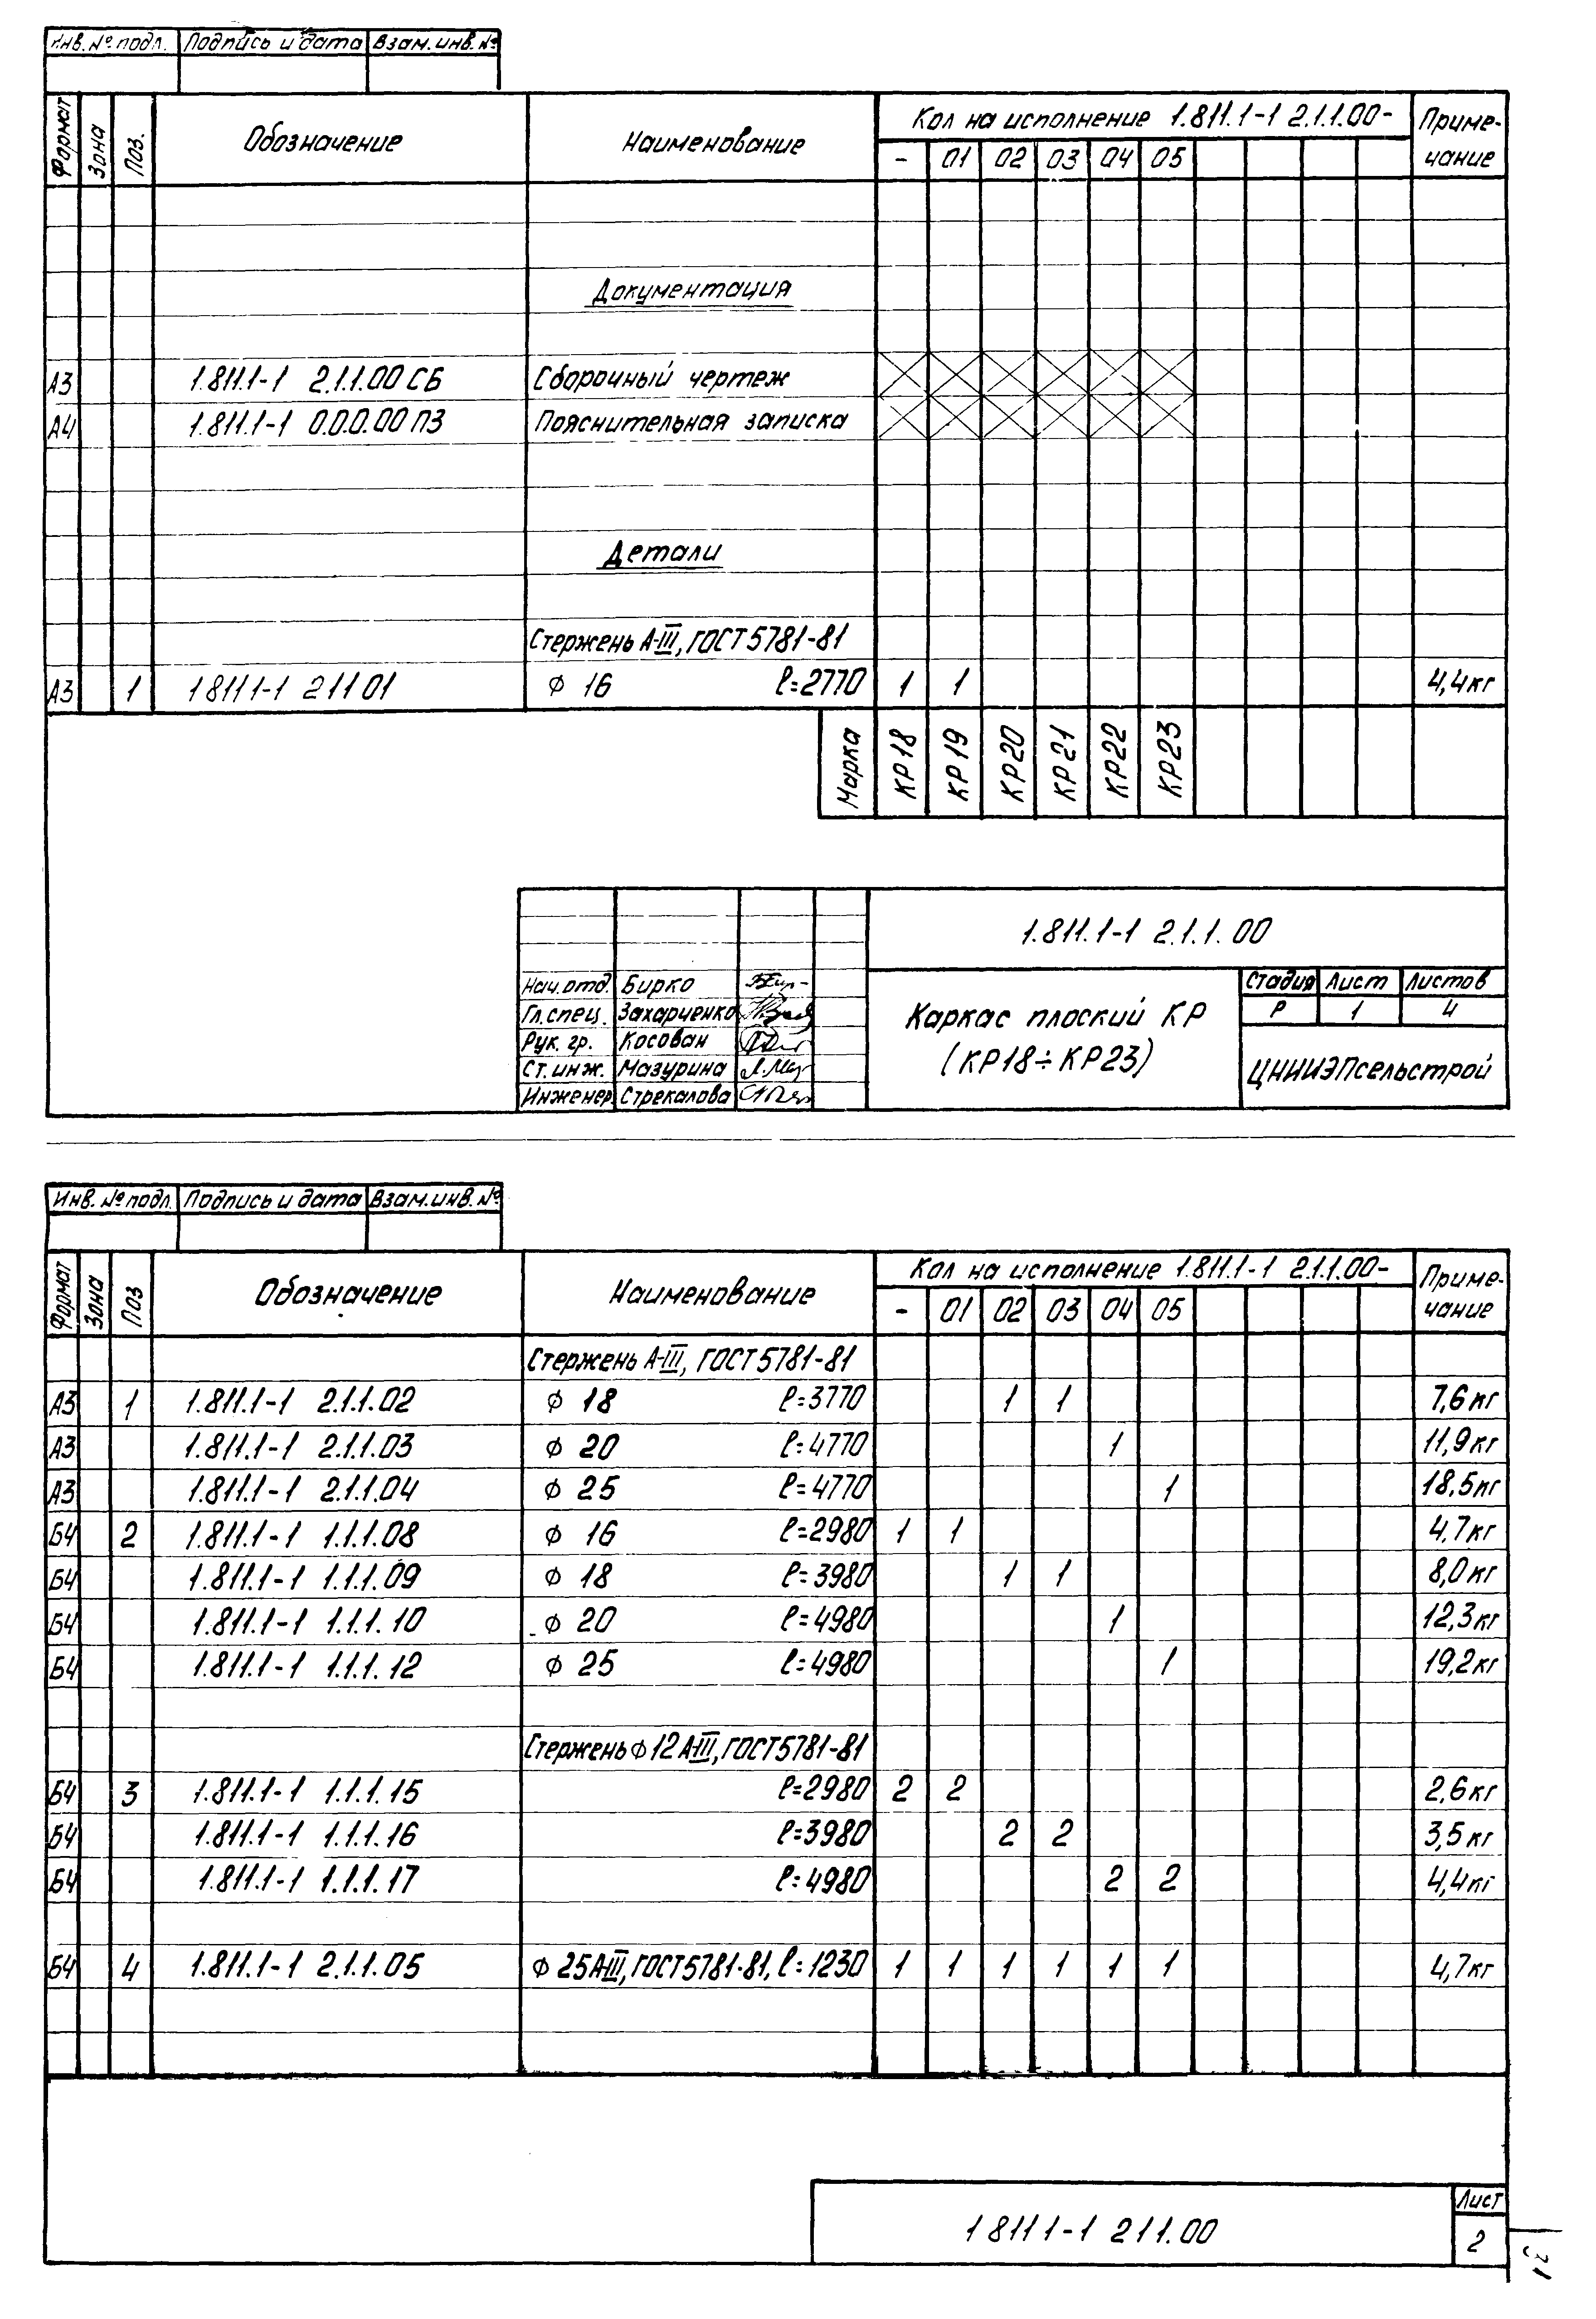 Инв. № подл. Подпись и дата Взам. инв. №
Формат Зона Поз. Обозначение Наименование Кол на исполнение 1.811.1-1 2.1.1.00- Приме-
- 01 02 03 04 05 чание
Документация
А3 1.811.1-1 2.1.1.00 СБ Сборочный чертеж
А4 1.811.1-1 0.0.0.00 ПЗ Пояснительная записка
Детали
Стержень А-III, ГОСТ 5781-81
А3 1 1 811 1-1 2 1 1 01 ϕ 16 ℓ=2770 1 1 4,4кг
Марка КР18 КР19 КР20 КР21 КР22 КР23
1.811.1-1 2.1.1.00
Нач. отд. Бирко
Гл. спец. Захарченко
Рук. гр. Косован
Ст. инж. Мазурина
Инженер. Стрекалова
Каркас плоский КР
(КР18÷КР23)
Стадия Лист Листов
Р 1 4
ЦНИИЭПсельстрой
Инв. № подл. Подпись и дата Взам. инв. №
Формат Зона Поз Обозначение Наименование Кол на исполнение 1.811.1-1 2.1.1.00- Приме-
- 01 02 03 04 05 чание
Стержень А-III, ГОСТ 5781-81
А3 1 1.811.1-1 2.1.1.02 ϕ 18 ℓ=3770 1 1 7,6кг
А3 1.811.1-1 2.1.1.03 ϕ 20 ℓ=4770 1 11,9кг
А3 1.811.1-1 2.1.1.04 ϕ 25 ℓ=4770 1 18,5кг
Б4 2 1.811.1-1 1.1.1.08 ϕ 16 ℓ=2980 1 1 4,7кг
Б4 1.811.1-1 1.1.1.09 ϕ 18 ℓ=3980 1 1 8,0кг
Б4 1.811.1-1 1.1.1.10 ϕ 20 ℓ=4980 1 12,3кг
Б4 1.811.1-1 1.1.1.12 ϕ 25 ℓ=4980 1 19,2кг
Стержень ϕ 12 А-III, ГОСТ 5781-81
Б4 3 1.811.1-1 1.1.1.15 ℓ=2980 2 2 2,6кг
Б4 1.811.1-1 1.1.1.16 ℓ=3980 2 2 3,5кг
Б4 1.811.1-1 1.1.1.17 ℓ=4980 2 2 4,4кг
Б4 4 1.811.1-1 2.1.1.05 ϕ 25 А-III, ГОСТ 5781-81, ℓ=1230 1 1 1 1 1 1 4,7кг
1 811 1-1 2 1 1.00
Лист
2
31